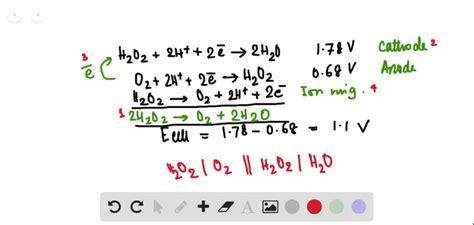 3 H₂O₂ + 2H⁺ + 2e̅ → 2H₂O 1.78 V Cathode 2
e̅ O₂ + 2H⁺ + 2e̅ → H₂O₂ 0.68 V Anode
H₂O₂ → O₂ + 2H⁺ + 2e̅ Ion mig. 4
1 2H₂O₂ → O₂ + 2H₂O
Ecell = 1.78 - 0.68 = 1.1 V
H₂O₂ | O₂ || H₂O₂ | H₂O
A